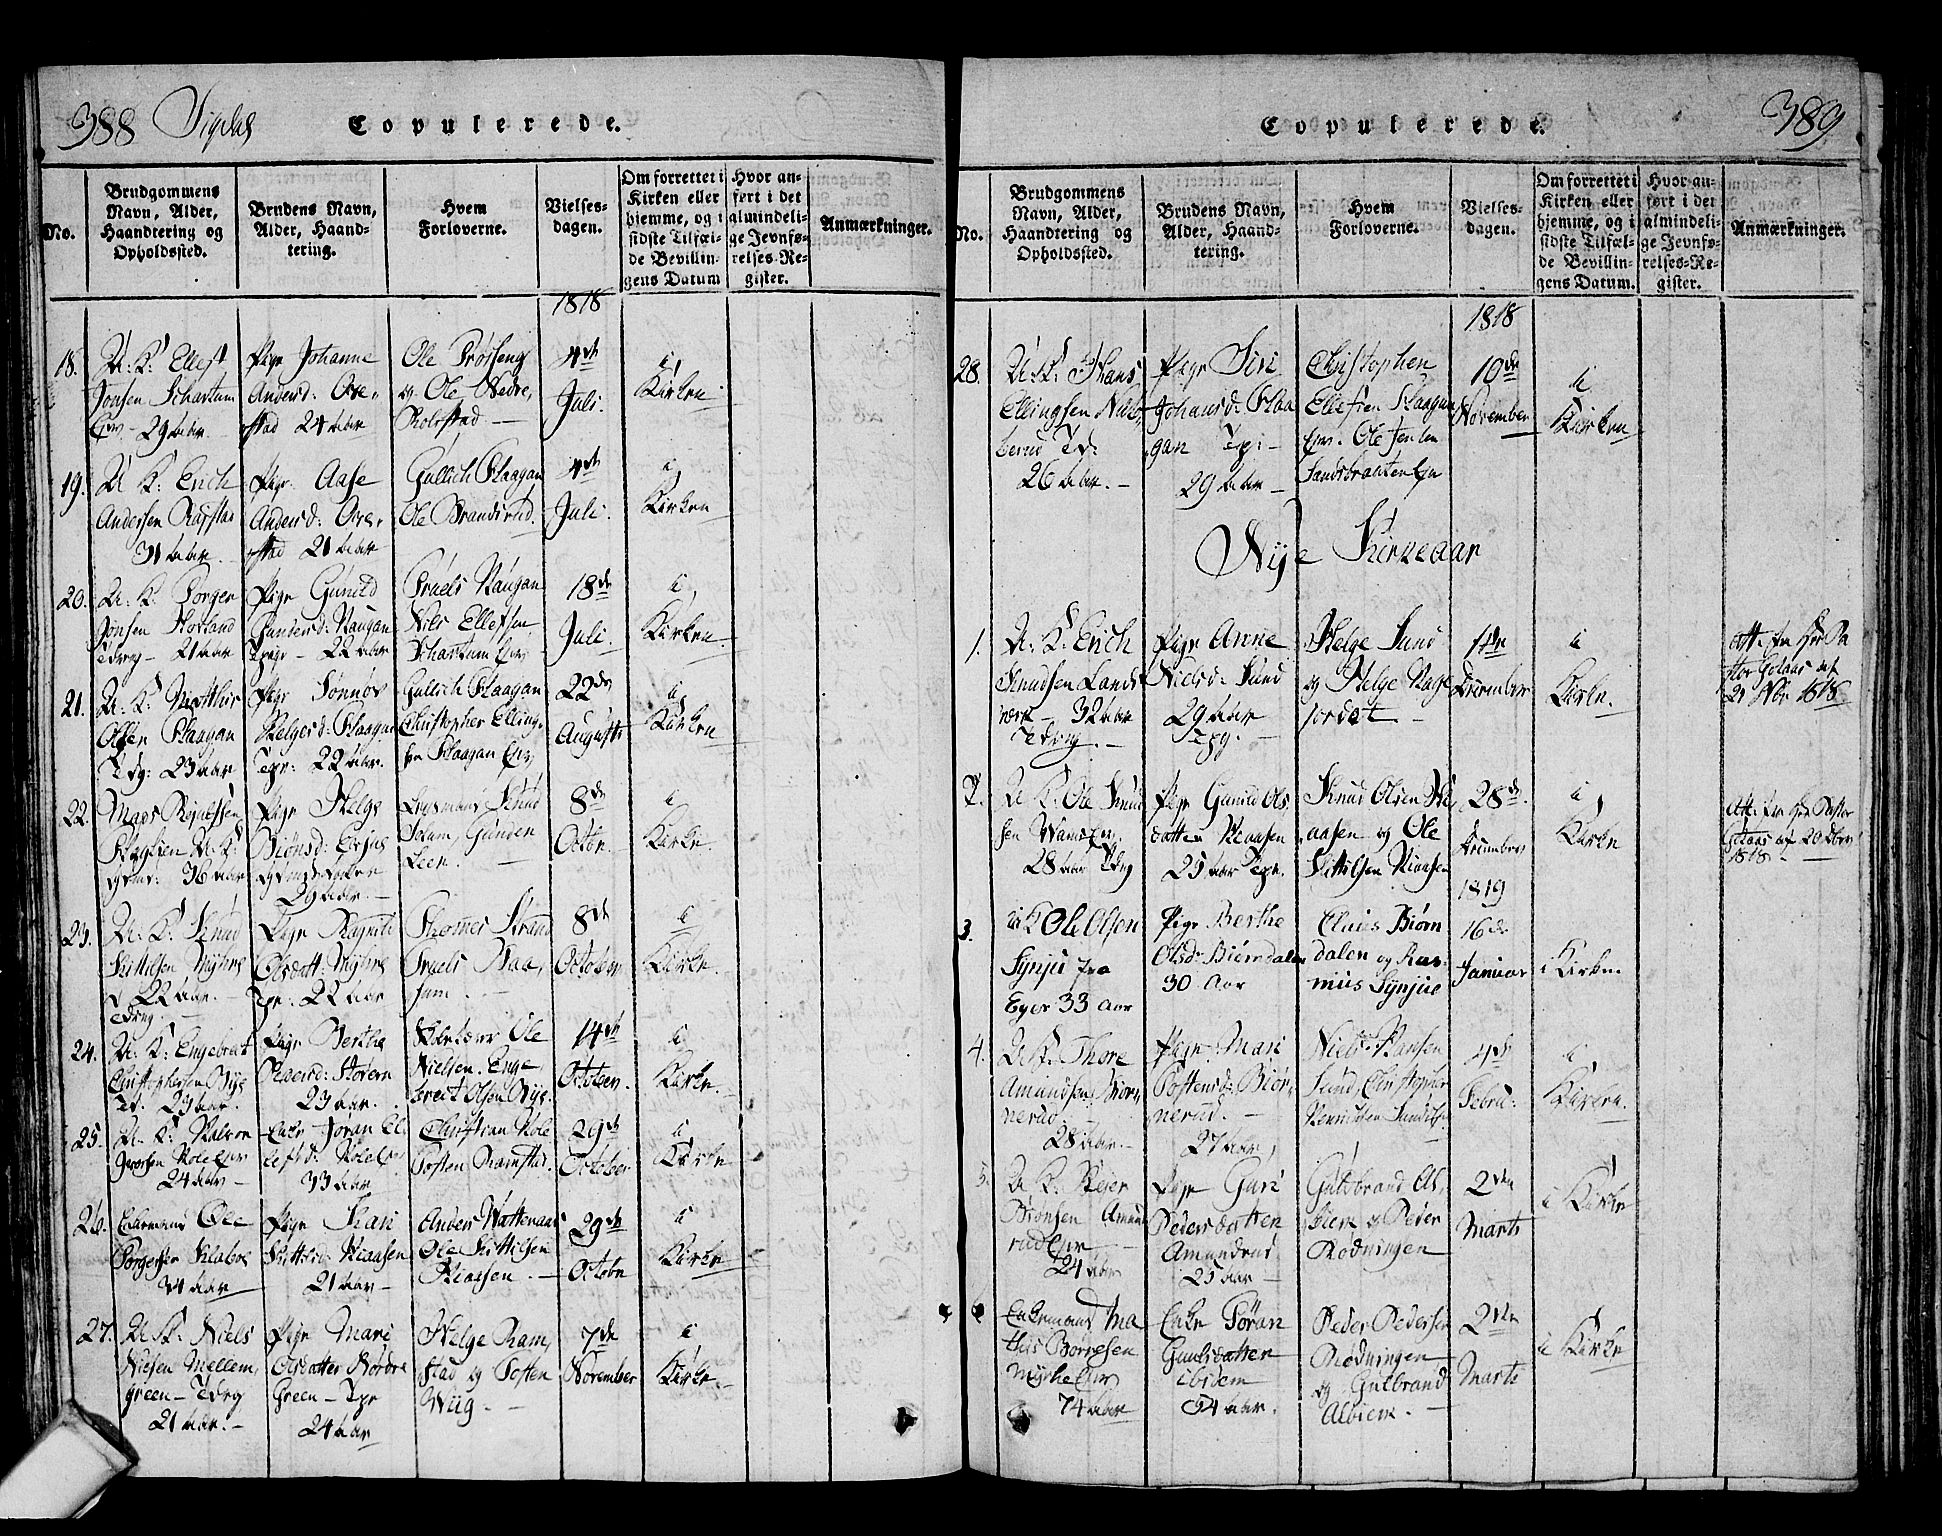 388 Sigdal
Copulerede.
No.
Brudgommens
Navn, Alder,
Haandtering og
Opholdssted.
Brudens Navn,
Alder, Haand-
tering.
Hvem
Forloverne.
Vielses-
dagen.
Om forrettet i
Kirken eller
hjemme, og i
sidste Tilfæl-
de Bevillin-
gens Datum
Hvor an-
ført i det
almindeli-
ge Jevnfø-
relses-Re-
gister.
Anmærkninger.
1818
18.
U: K: Ellef
Jonsen Schartum
29 aar
Pige Johanne
Andersd: Ove-
stad 24 aar
Ole Trøiseng
og Ole Nedre
Rolvstad
4de
Juli.
i
Kirken
19.
U: K: Erich
Andersen
31 aar
Pige Aase
Andersd: Ove-
stad 21 aar
Gullich Flaagan
Ole Brandsrud.
4de
Juli.
i
Kirken
20.
U: K: Torger
Jonsen Hovland
21 aar
Pige Gunild
Gundersd: Haugan
22 aar
Truels Haugan
Nils Ellefsen
Schartum
18de
Juli.
i
Kirken
21.
U: K: Matthis
Olsen Flaagan
23 aar
Pige Sønnøv
Helgesd: Flaagan
22 aar.
Gullich Flaagan
Christopher Elling-
sen Flaagan
22de
August
i
Kirken
22.
U: K:
36 aar
Pige Helge
29 aar.
Lensmand Knud
Solum, Gunder
Leen.
8de
October
i
Kirken.
23.
U: K: Knud
Kittilsen Myhre
22 aar.
Pige Ragnild
Olsdatt: Myhre
22 aar
Thomes Strand
Truels Aaa-
sum.
8de
October
i
Kirken.
24.
U: K: Engebret
Christophersen Bye
23 aar.
Pige Berthe
23 aar.
Ole
Nielsen. Enge-
bret Olsen Bye.
14de
October.
i
Kirken.
25.
U: K: Halvor
Iversen Hole
24 aar
Enke Joran El-
lefsd: Hole
33 aar
Christian Hole
Tosten Ramstad.
29de
October
i
Kirken
26.
Enkemand Ole
Torgersen
34 aar
Pige Kari
Kittilsd: Kiaasen
21 aar
Anders Wattenaas
Ole Kittilsen
Kiaasen.
29de
October
i
Kirken
27.
U: K: Niels
Nielsen Mellem-
green
21 aar.
Pige Mari
Olsdatter Nordre
Green
24 aar
Helge Ram-
stad og Tosten
Wiig.
7de
November
i
Kirken.
389
Copulerede.
No.
Brudgommens
Navn, Alder,
Haandtering og
Opholdssted.
Brudens Navn,
Alder, Haand-
tering.
Hvem
Forloverne.
Vielses-
dagen.
Om forrettet i
Kirken eller
hjemme, og i
sidste Tilfæl-
de Bevillin-
gens Datum.
Hvor an-
ført i det
almindeli-
ge Jevnfø-
relses-Re-
gister.
Anmærkninger.
1818
28.
U: K: Hans
Ellingsen
26 aar.
Pige Siri
Johansd: Flaa-
gan
29 aar
Christopher
Ellefsen Flaagan
Ole Jensen
Sandsbraaten
10de
November
i
Kirken
Nye Kirkeaar
1.
U: K: Erich
Knudsen Lands-
værk 32 aar
Pige Anne
Nielsd: Lund
29 aar
Helge Lund
og Helge Hage
jordet
1ste
December
i
Kirken.
att: fra Hr Pa-
stor Gelaas af
21 Nbr 1818
2.
U: K: Ole Knud-
sen
28 aar
Pige Gunild Ols-
datter Kiaasen
25 aar
Knud Olsen Ki-
aasen og Ole
Kittilsen Kiaasen
28de
December
i
Kirken
Att: fra Hr Pastor
Gelaas af 20 Dbr
1818
1819
3.
U K Ole Olsen
Synjue fra
Eger 33 aar
Pige Berthe
Olsd: Biørndalen
30 Aar
Claus Biørn
dalen og Ras-
mus Synjue
16de
Januar
i Kirken.
4.
U: K: Thore
Amundsen Biør-
nerud
28 aar.
Pige Mari
Tostensd: Biør-
nerud.
27 aar
Niels Hansen
Lund, Christopher
4de
Febru:
i
Kirken.
5.
U: K: Reier
Biønsen Amund-
rud
24 aar
Pige Guri
Pedersdatter
Amundrud
25 aar
Guldbrand Al-
biem og Peder
Rødningen
2den
Marts
i Kirken
6
Enkemand Ma-
this Børresen
Myhre
74 aar
Enke Jøran
Gunlsdatter
ibidem
54 aar.
Peder Pedersen
Rødningen
og Gulbrand
Albiem.
2den
Marts
i Kirken